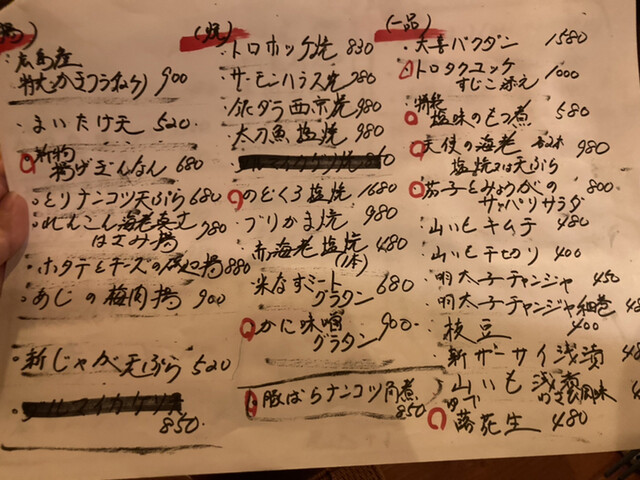 (揚)
広島産
特大かきフライ(1ヶ) 900
まいたけ天 520
新物
揚げぎんなん 680
とりナンコツ天ぷら 680
れんこん海老真丈
はさみ揚 980
ホタテとチーズの 揚 880
あじの梅肉揚 900
新じゃが天ぷら 520
850
(焼)
トロホッケ焼 830
サーモンハラス焼 780
銀ダラ西京焼 980
太刀魚塩焼 980
のどくろ塩焼 1680
ブリかま焼 980
赤海老塩焼 480
(1本)
米なすミート 680
グラタン
かに味噌 900
グラタン
豚ばらナンコツ角煮
850
(一品)
大喜バクダン 1580
トロタクユッケ
すじこ添え 1000
特製
塩味のもつ煮 580
天使の海老 各2本 980
塩焼又は天ぷら
茄子とみょうがの 800
サッパリサラダ
山いもキムチ 480
山いも千切り 400
明太子チャンジャ 450
明太子チャンジャ細巻
枝豆 400
新ザーサイ浅漬
山いも浅漬
わさび風味
落花生 480